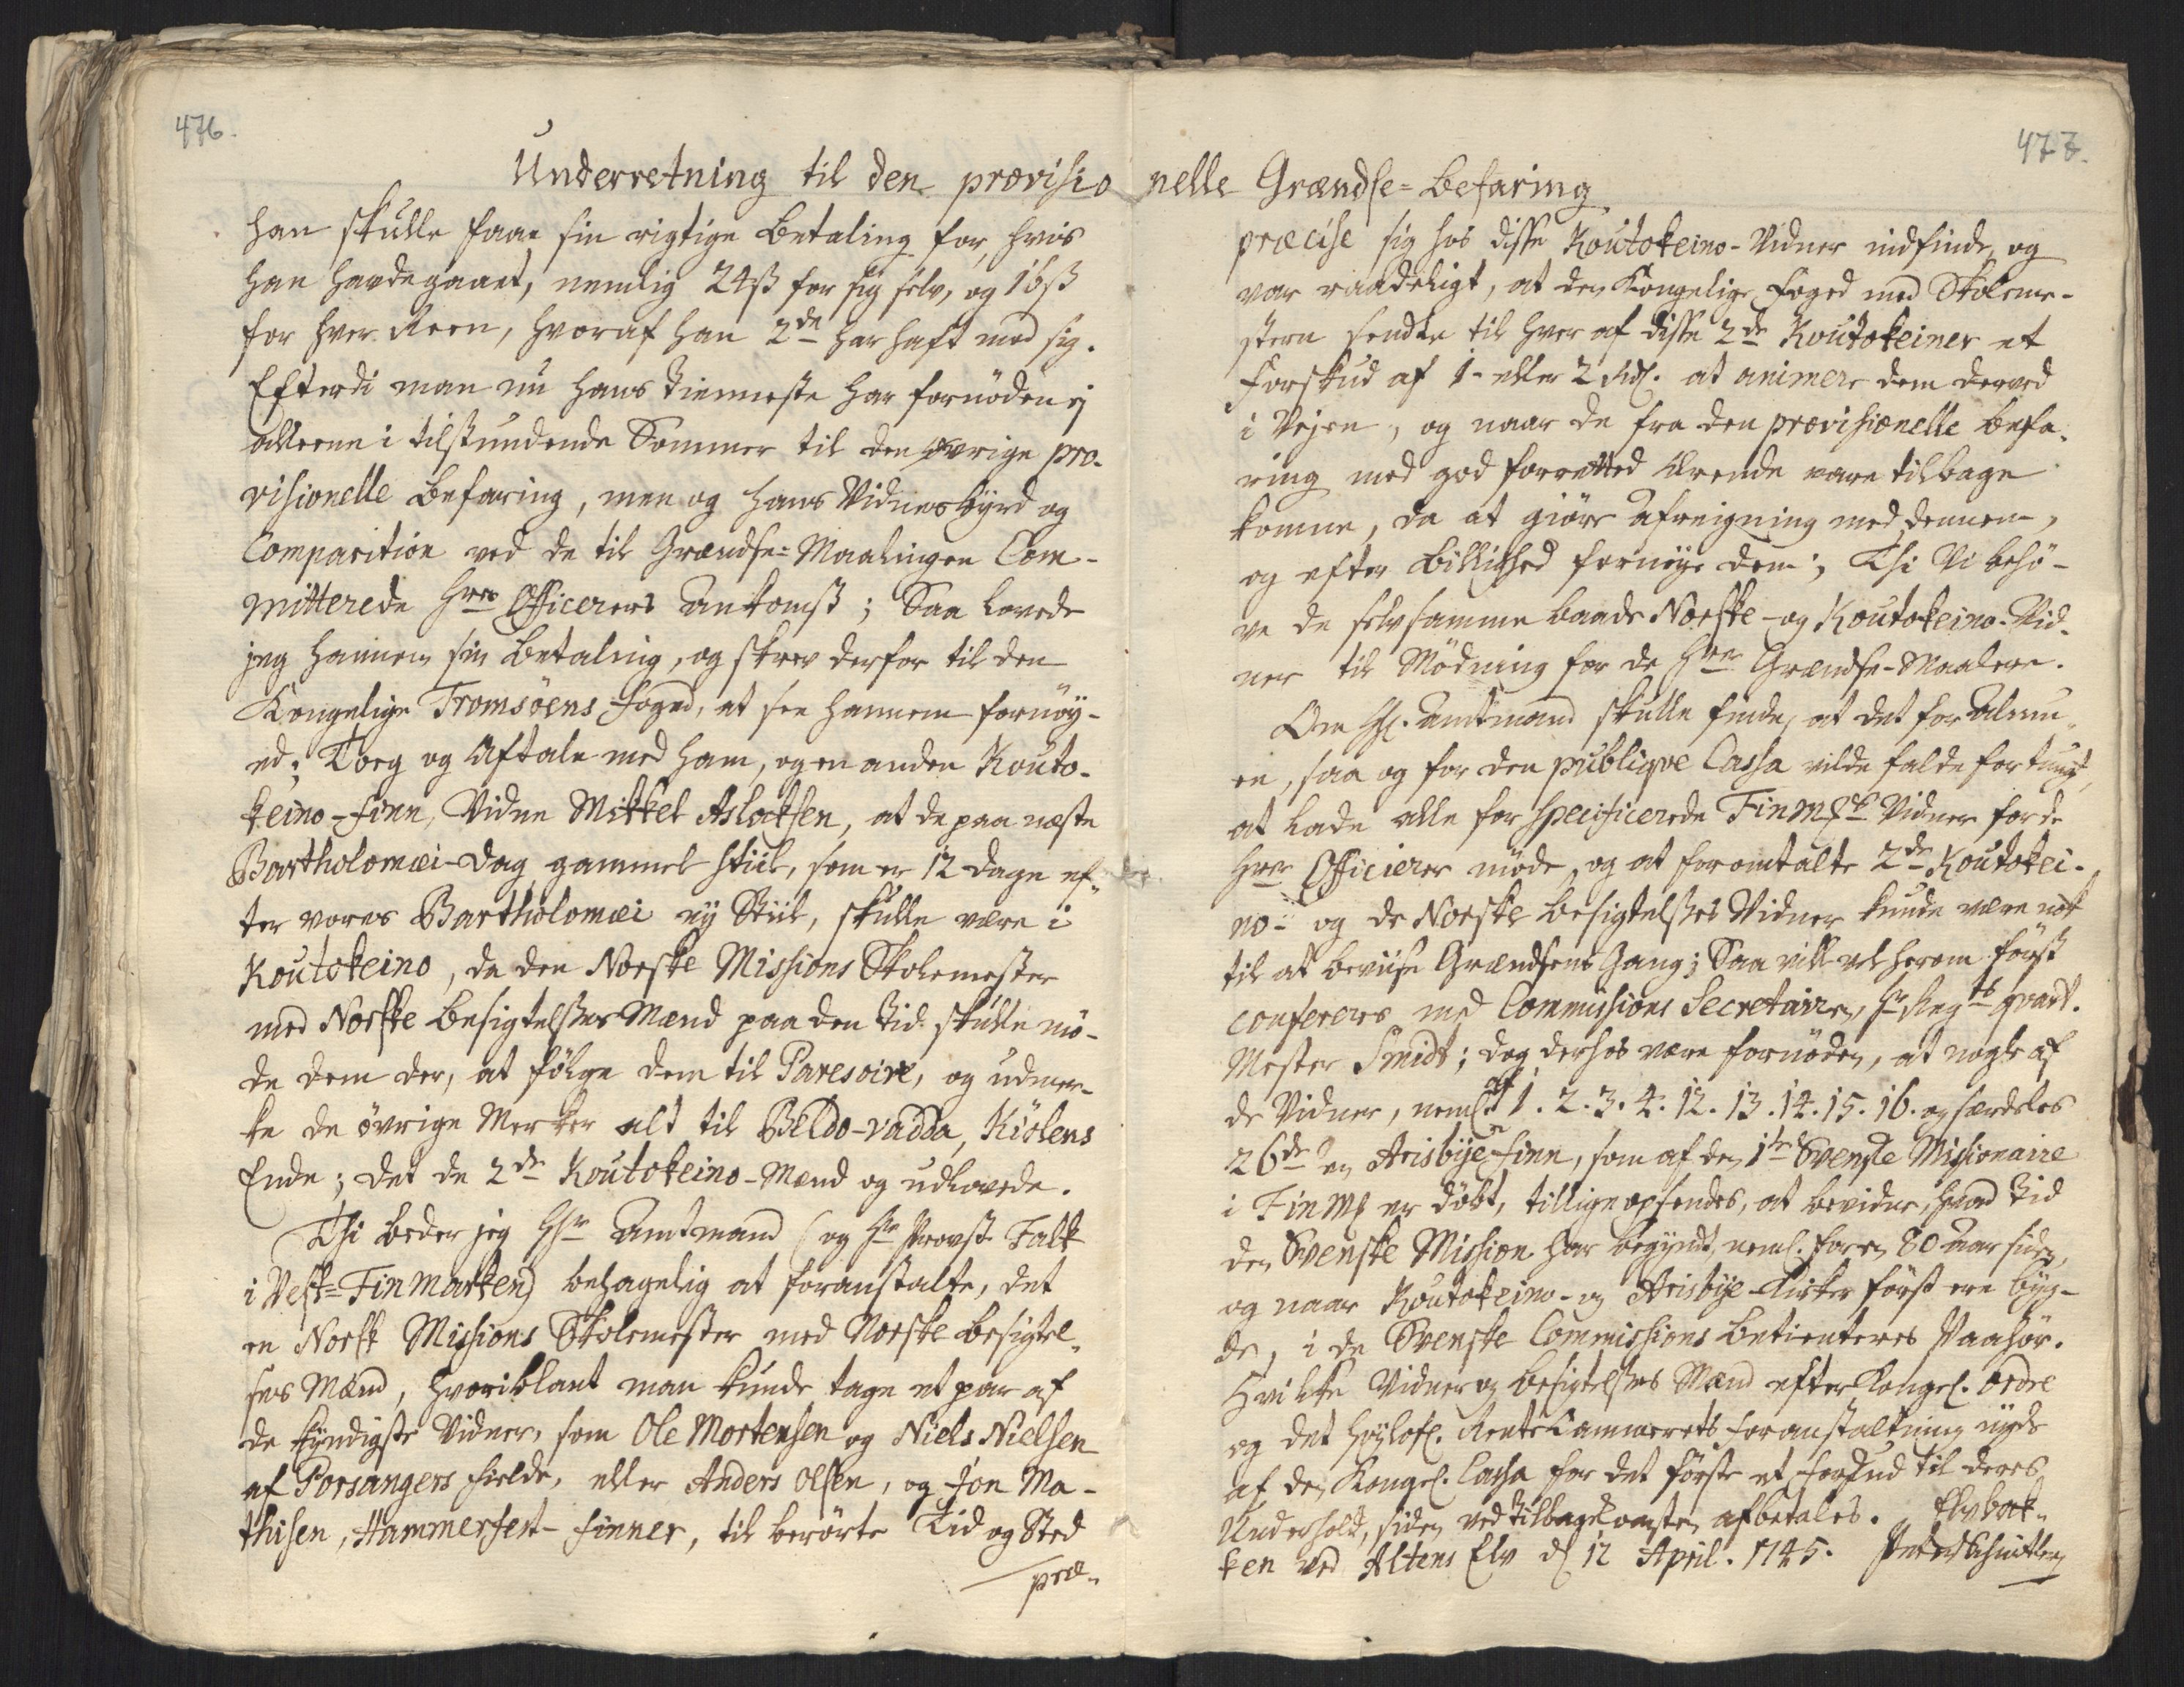 476.
477.
Underretning til den provisionelle Grændse=Befaring
han skulle faae sin rigtige Betaling for, hvis
han havde gaaet, nemlig 24ß for sig selv, og 16ß
for hver Reen, hvoraf han 2de har haft med sig.
Efterdi man nu hans Tienneste har fornøden ej
alleene i tilstundende Sommer til den øvrige pro-
visionelle Befaring, men og hans Vidnesbyrd og
Comparition ved de til Grændse=Maalingen Com-
mitterede Hrrs Officerers Ankomst; Saa lovede
jeg hannem sin Betaling, og skrev derfor til den
Kongelige Tromsöens Foged, at see hannem fornöy-
ed; Toeg og Aftale med ham, og en anden Kouto-
keino-Finn, Vidne Mikkel Aslaksen, at de paa næste
Bartholomæi-Dag gammel Stiil, som er 12 Dage ef-
ter vores Bartholomæi ny Stiil, skulle være i
Koutokeino, da den Norske Missions Skolemester
med Norske Besigtelses Mænd paa den Tid skulle mö-
de dem der, at fölge dem til Paresoive, og udmer-
ke de övrige Merker alt til Beldo-vadda, Kiölens
Ende; Det de 2de Koutokeino-Mænd og udlovede.
Thi beder jeg Hr Amtmand (og Hr Provst Falk
i Vest=Finmarken) behagelig at foranstalte, det
en Norsk Missions Skolemester med Norske Besigtel-
ses Mænd, hvoriblant man kunde tage et par af
de kyndigste Vidner, som Ole Mortensen og Niels Nielsen
af Porsangers Fielde, eller Anders Olsen, og Jon Ma-
thisen, Hammerfest-Finner, til berörte Tid og Sted
præ-
præcise sig hos disse Koutokeino-Vidner indfinde, og
var raadeligt, at den Kongelige Foged med Skoleme-
steren sendte til hver af disse 2de Koutokeiner et
Forskud af 1- eller 2 Rdl. at animere dem derved
i Vejen, og naar de fra den provisionelle Befa-
ring med god forrettet Ærende vare tilbage
komne, da at giöre Afreigning med dennem,
og efter Billighed fornöye dem; Thi Vi behö-
ve de selvsamme baade Norske-og Koutokeino-Vid-
ner til Mödning for de Hrr Grændse-Maalere.
Om Hr. Amtmand skulle finde, at det for Almu-
en, saa og for den publiqve Cassa vilde falde for tungt,
at lade alle for specificerede Finmske Vidner for de
Hrr Officierer möde, og at foromtalte 2de Koutokei-
no- og de Norske Besigtelses Vidner kunde være nok
til at beviise Grændsens Gang; Saa vill vel herom först
confereres med Commissions Secretairen, Hr Regts qvart.
Mester Smidt; dog derhos være fornöden, at nogle af
de Vidner, neml. 1. 2. 3. 4. 12. 13. 14. 15. 16. og særdeles
26de en Arisbye Finn, som af den 1te Svenske Missionaire
i Finm er döbt, tillige opsendes, at bevidne, hvad Tid
den Svenske Mission har begyndt, neml. for en 80 Aar siden,
og naar Koutokeino- og Arisbye-Kirker först ere byg-
de, i de Svenske Commissions Betienteres Paahör.
Hvilke Vidner og Besigtelses Mænd efter Kongel. Ordre
og det Höylofl. Rente Cammerets Foranstaltning nyde
af den Kongel. Cassa for det förste et Forskud til deres
Underhold, siden ved Tilbagekomsten afbetales. Elvbak-
ken ved Altens Elv d 12 April. 1745. Peter Schnitler